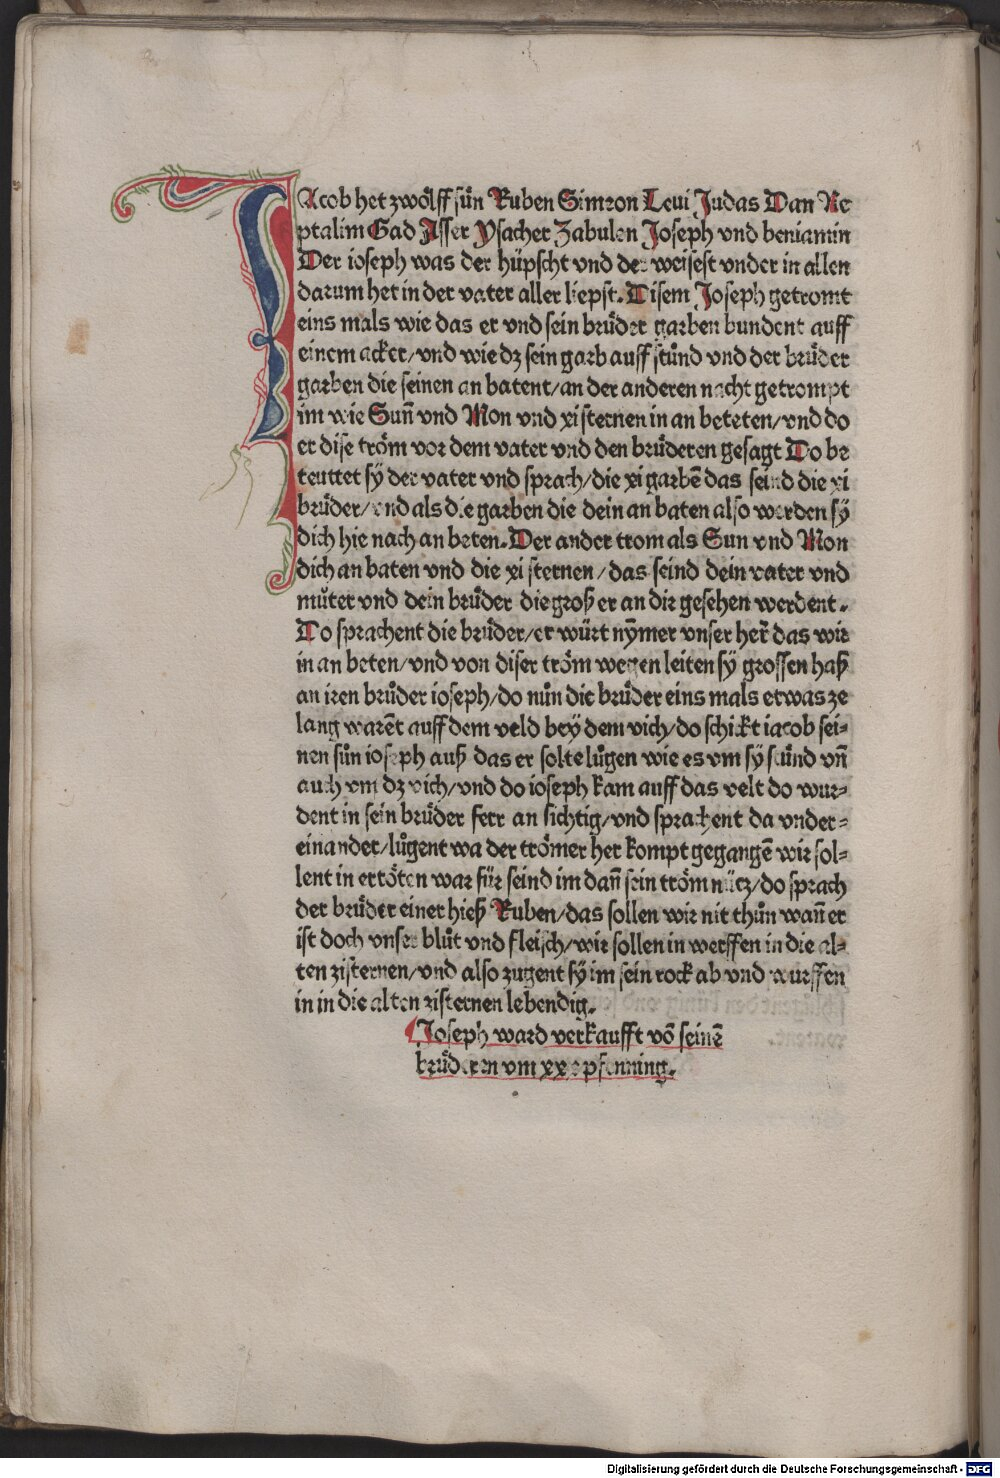 IAcob het zwölff sün Ruben Simeon Leui Judas Dan Ne
ptalim Gad Asser Ysacher Zabulen Joseph vnd beniamin
Der ioseph was der hüpscht vnd der weisest vnder in allen
darum het in der vater aller liepst. Disem Joseph getromt
eins mals wie das er vnd sein brůder garben bundent auff
einem acker/vnd wie dz sein garb auff stůnd vnd der brůder
garben die seinen an batent/an der anderen nacht getrompt
im wie Suñ vnd Mon vnd xi sternen in an beteten/vnd do
er dise tröm vor dem vater vnd den brůderen gesagt Do be
teuttet sÿ der vater vnd sprach/die xi garbē das seind die xi
brůder/vnd als die garben die dein an baten also werden sÿ
dich hie nach an beten. Der ander trom als Sun vnd Mon
dich an baten vnd die xi sternen/das seind dein vater vnd
můter vnd dein brůder die groß er an dir gesehen werdent.
Do sprachent die brůder/er würt nÿmer vnser her̃ das wir
in an beten/vnd von diser tröm wegen leiten sÿ grossen haß
an iren brůder ioseph/do nůn die brůder eins mals etwas ze
lang warēt auff dem veld beÿ dem vich/do schickt iacob sei=
nen sůn ioseph auß das er solte lůgen wie es vm sÿ stůnd vñ
auch vm dz vich/vnd do ioseph kam auff das velt do wur=
dent in sein brůder ferr an sichtig/vnd sprachent da vnder=
einander/lůgent wa der trömer her kompt gegangē wir sol=
lent in ertöten war für seind im dañ sein tröm nütz/do sprach
der brůder einer hieß Ruben/das sollen wir nit thůn wañ er
ist doch vnser blůt vnd fleisch/wir sollen in werffen in die al=
ten zisternen/vnd also zugent sÿ im sein rock ab vnd wurffen
in in die alten zisternen lebendig.
Joseph ward verkaufft vō seinē
brůderen vm xxx pfenning.
Digitalisierung gefördert durch die Deutsche Forschungsgemeinschaft - DFG